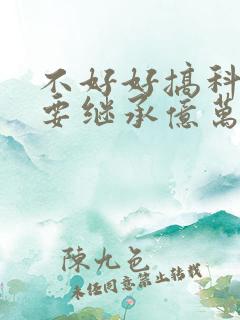 不好好搞科
要继承億萬
陳九邑
未经同意禁止转载